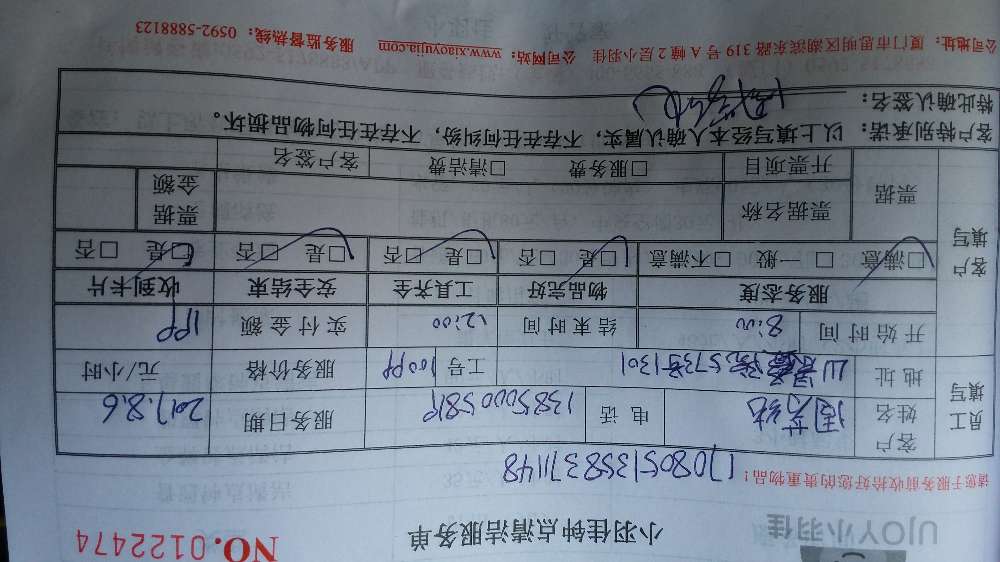 UJOY小羽佳
小羽佳钟点清洁服务单
NO.0122474
请您于服务前收拾好您的贵重物品！
170805135837 1148
员工填写
客户姓名 电话 13850005819 服务日期 2017.8.6
地址 工号 服务价格 元/小时
开始时间 8:00 结束时间 12:00 实付金额
客户填写
服务态度 物品完好 工具齐全 安全结束 收到卡片
□满意 □一般 □不满意 □是 □否 □是 □否 □是 □否 □是 □否
票据 票据名称 票据金额
开票项目 □服务费 □清洁费 客户签名
客户特别承诺：以上填写经本人确认属实，不存在任何纠纷，不存在任何物品损坏。
特此确认签名：
公司地址：厦门市思明区湖滨东路319号A幢2层小羽佳 公司网站：www.xiaoyujia.com 服务监督热线：0592-5888123